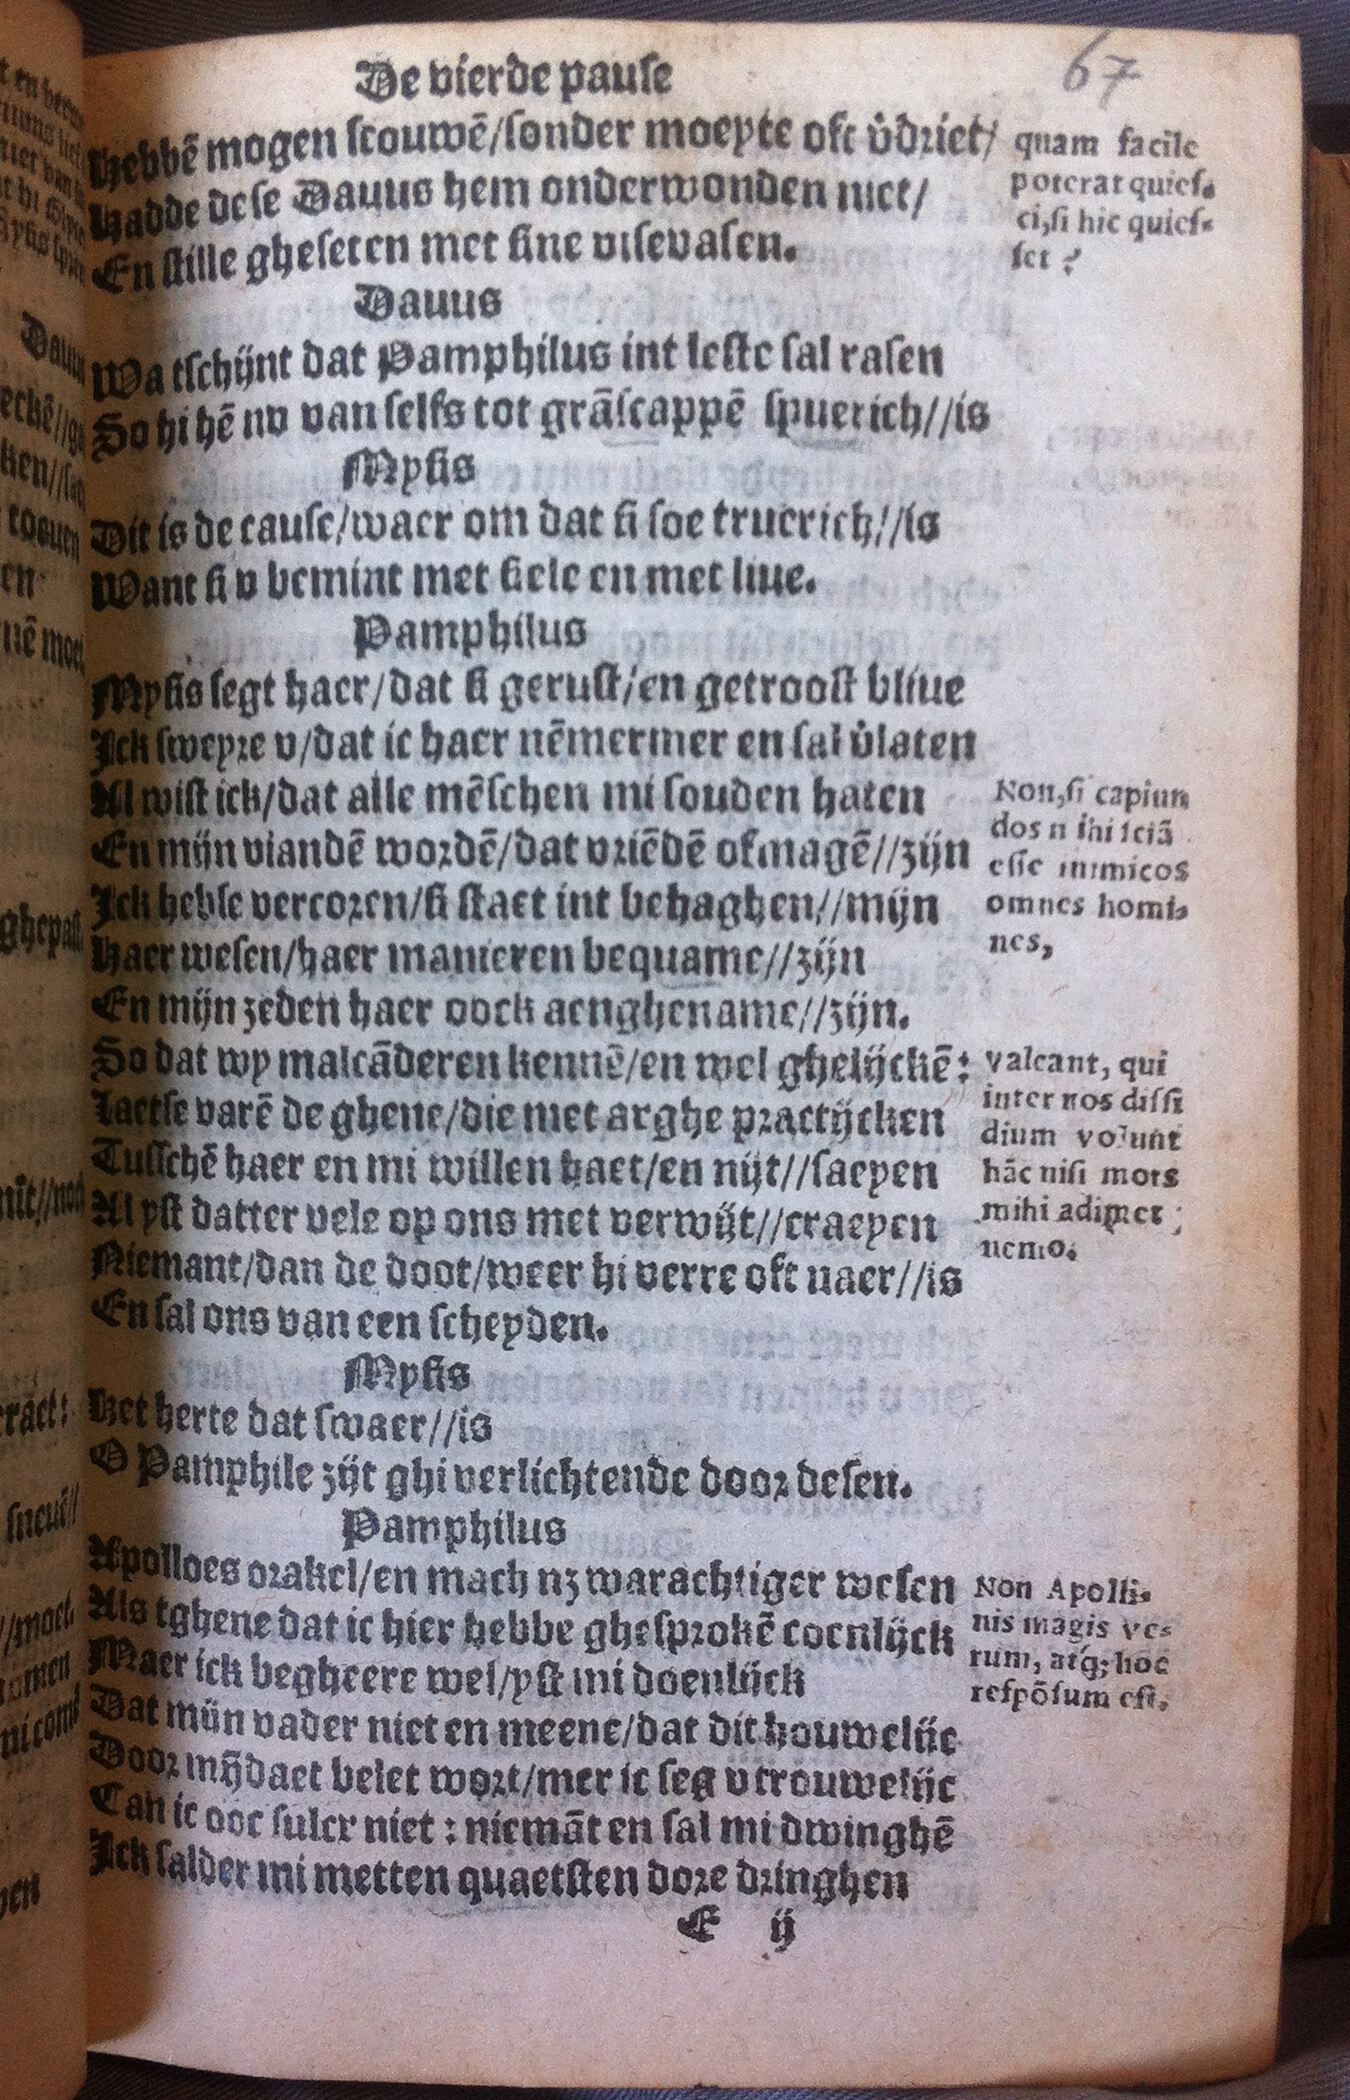 De vierde pause
67
Hebbē mogen scouwē/sonder moeyte oft v̄driet/
Hadde dese Dauus hem onderwonden niet/
En stille gheseten met sine visevasen.
quam facile
poterat quies-
ci, si hic quies-
set ?
Dauus
Wa tschijnt dat Pamphilus int leste sal rasen
So hi hē nv van selfs tot grāscappē spuerich//is
Mysis
Dit is de cause/waer om dat si soe truerich//is
Want si v bemint met siele en met liue.
Pamphilus
Mysis segt haer/dat si gerust/en getroost bliue
Ick sweyre v/dat ic haer nēmermer en sal v̄laten
Al wist ick/dat alle mēschen mi souden haten
En mijn viandē wordē/dat vriēdē ofmagē//zijn
Ick hebse vercoren/si staet int behaghen//mijn
Haer wesen/haer manieren bequame//zijn
En mijn zeden haer oock aenghename//zijn.
Non, si capiun
dos mihi sciā
esse inimicos
omnes homi-
nes,
So dat wy malcāderen kennē/en wel ghelijckē:
Laetse varē de ghene/die met arghe practijcken
Tusschē haer en mi willen haet/en nijt//saeyen
Al yst datter vele op ons met verwijt//craeyen
Niemant/dan de doot/weer hi verre oft naer//is
En sal ons van een scheyden.
valeant, qui
inter nos dissi
dium volunt
hāc nisi mors
mihi adimet
nemo.
Mysis
Het herte dat swaer//is
O Pamphile zijt ghi verlichtende door desen.
Pamphilus
Apolloes orakel/en mach nz warachtiger wesen
Als tghene dat ic hier hebbe ghesprokē coenlijck
Maer ick begheere wel/yst mi doenlijck
Dat mijn vader niet en meene/dat dit houwelijc
Door mijdaet belet wort/mer ic seg v trouwelijc
Can ic ooc sulcx niet : niemāt en sal mi dwinghē
Ick salder mi metten quaetsten dore dringhen
Non Apolli-
nis magis ve-
rum, atq; hoc
respōsum est.
E ij